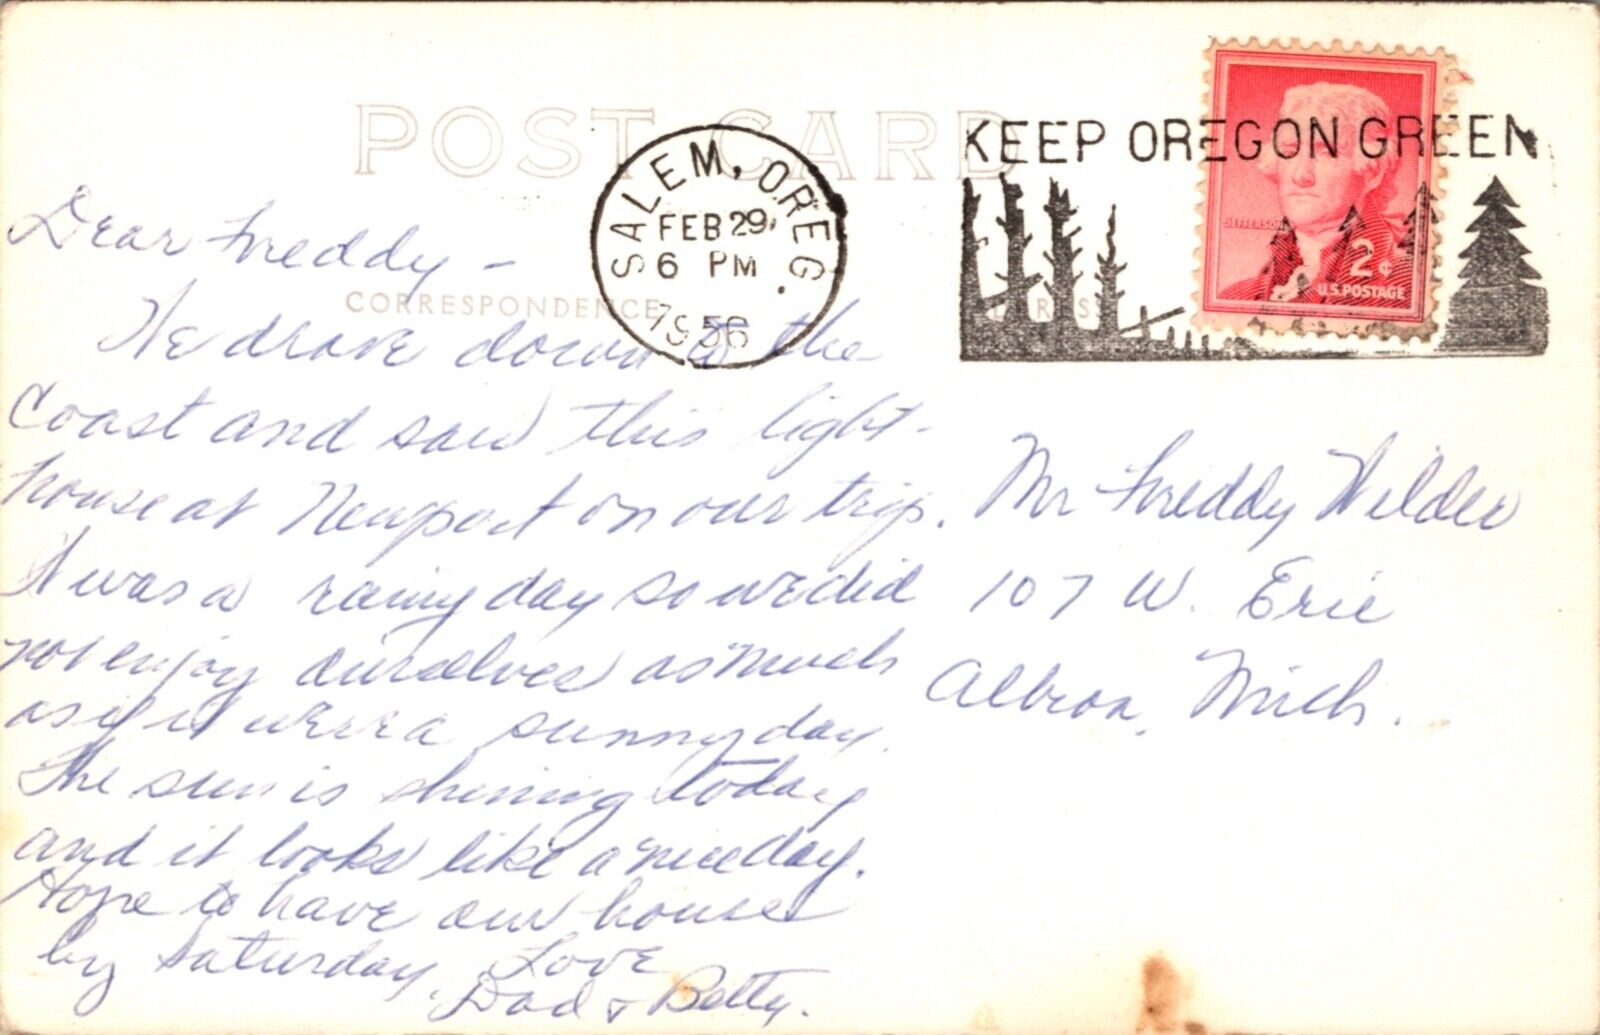 POST CARD
CORRESPONDENCE
SALEM, OREG.
FEB 29
6 PM
1956
KEEP OREGON GREEN
JEFFERSON
2¢
U.S. POSTAGE
Dear Freddy –
We drove down to the
Coast and saw this light-
house at Newport on our trip.
It was a rainy day so we did
not enjoy ourselves as much
as if it were a sunny day.
The sun is shining today
and it looks like a nice day.
Hope to have our house
by Saturday. Love
Dad & Betty.
Mr Freddy Wilder
107 W. Erie
Albion, Mich.